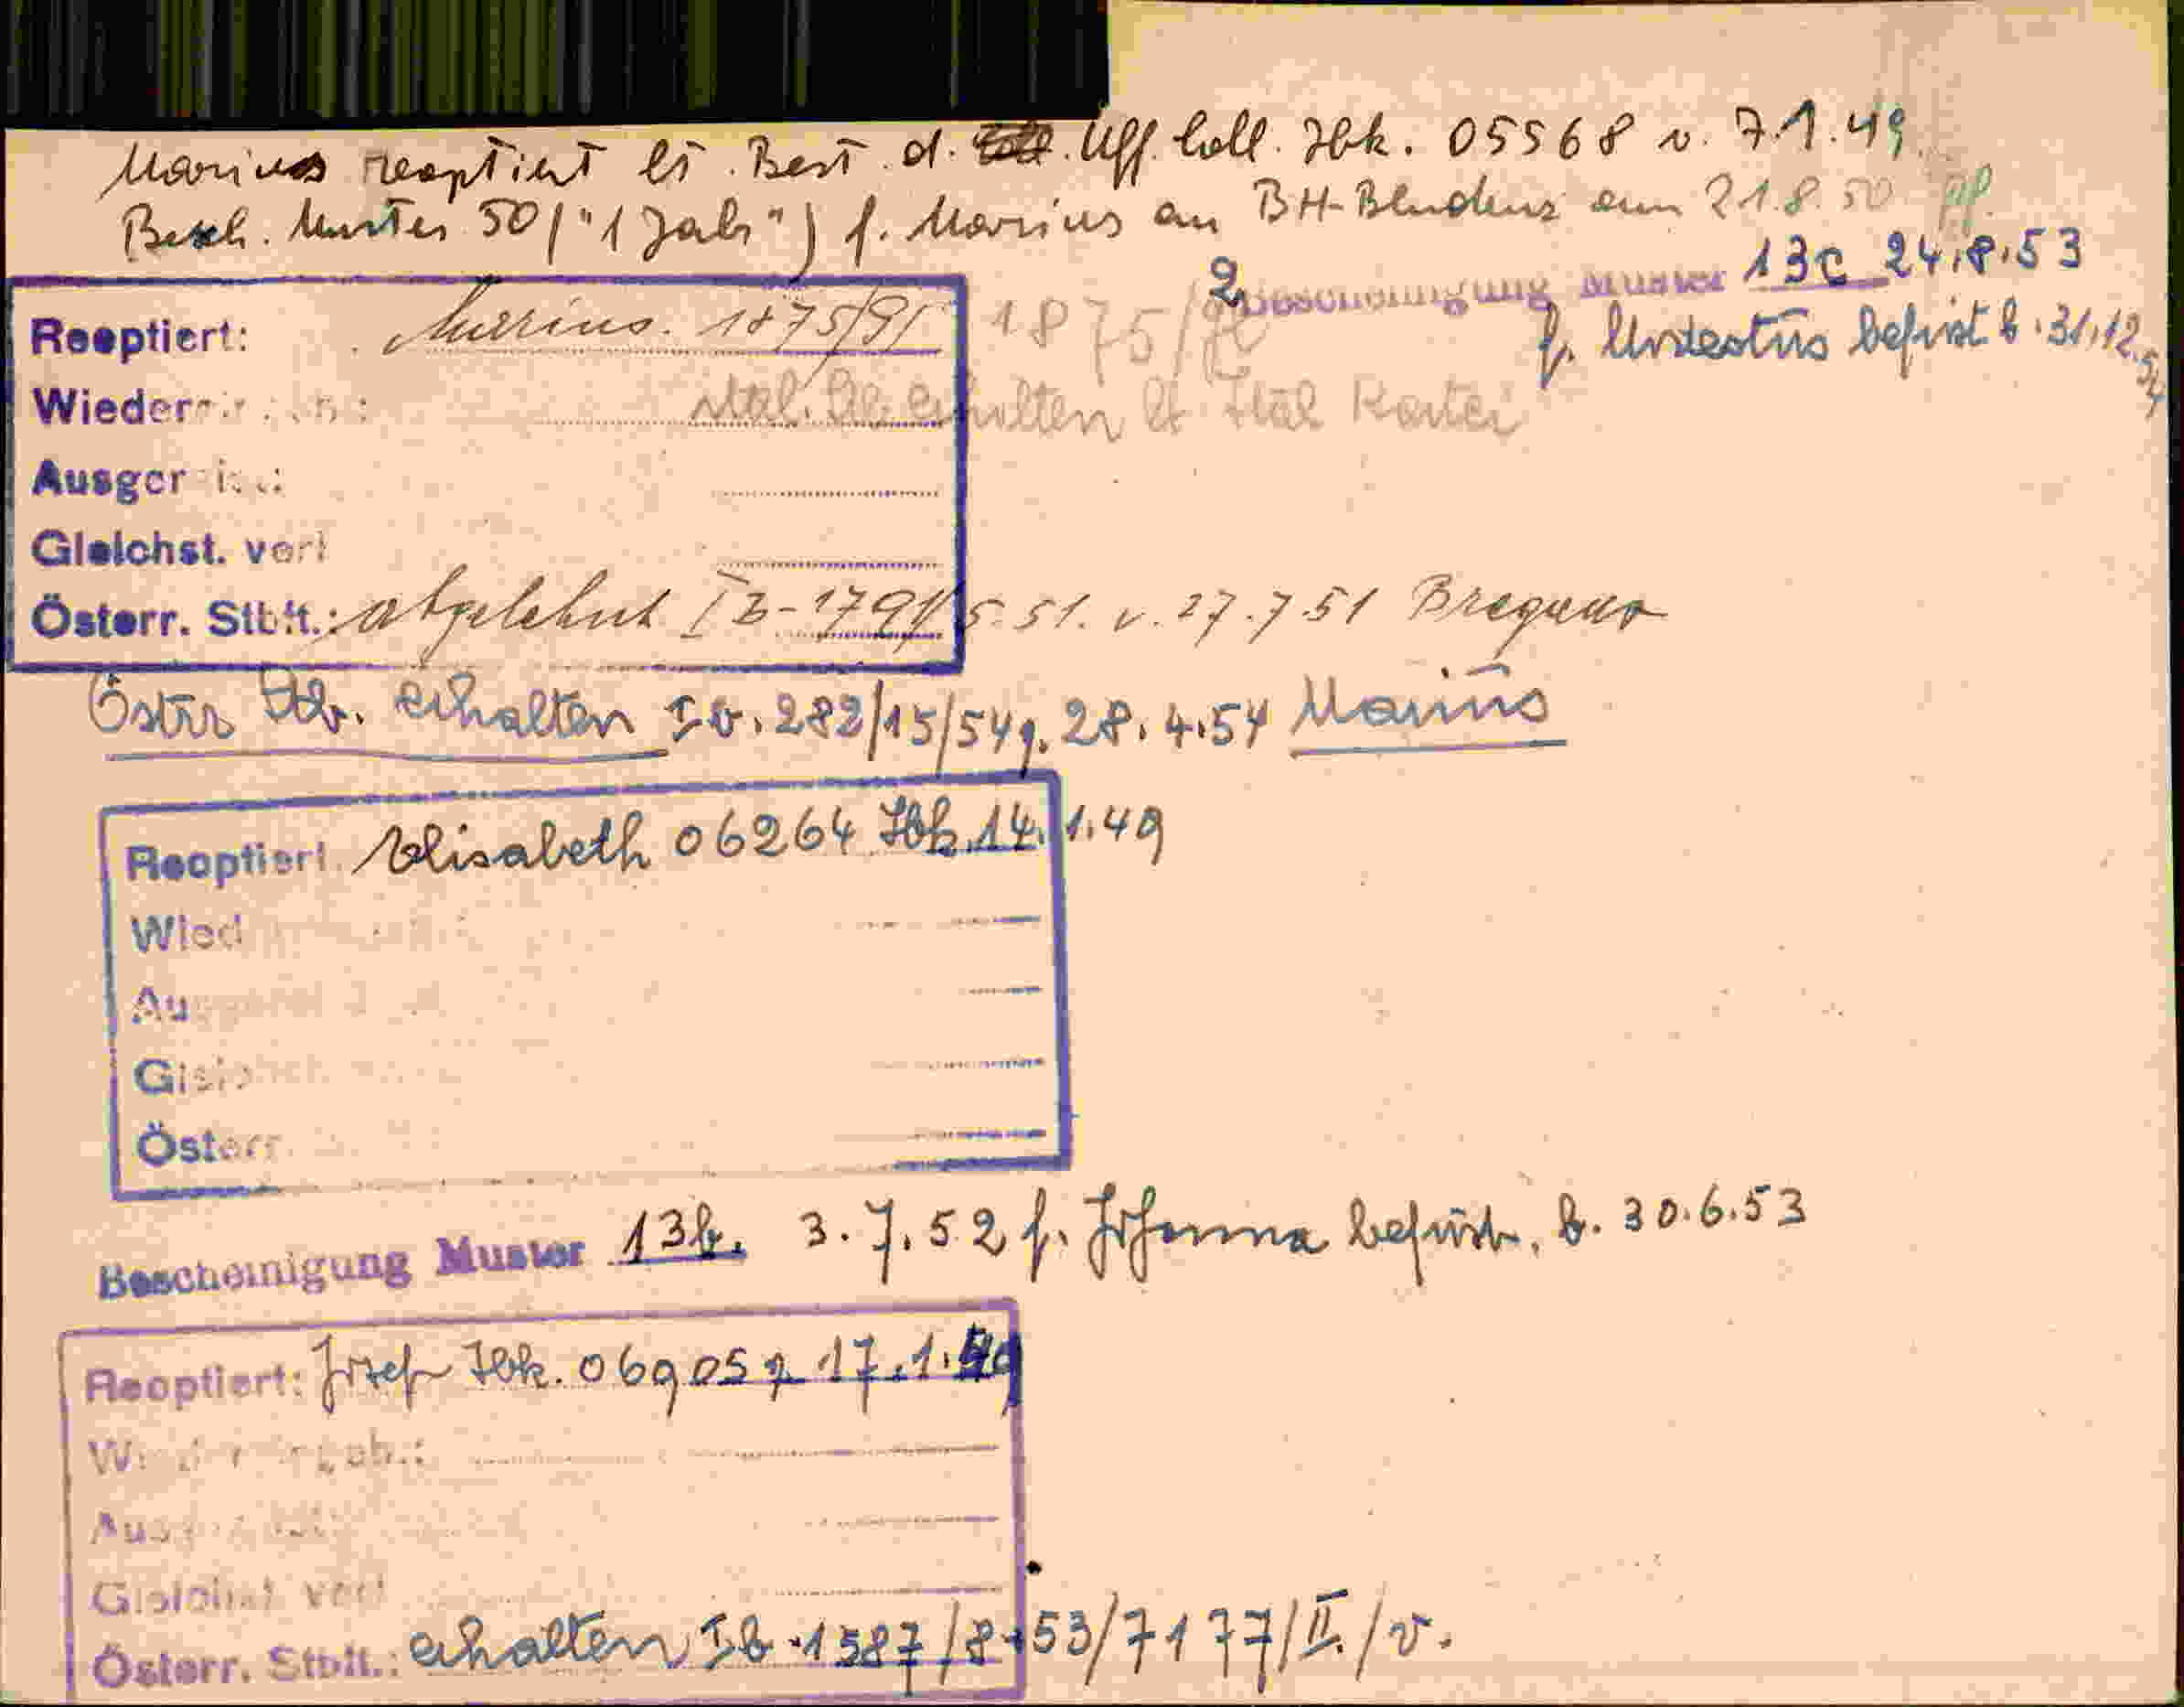 Marius reoptiert lt. Best. d. Uff. Coll. Ibk. 05568 v. 7.1.49.
Besch. Muster 50 ("1 Jahr") f. Marius an BH-Bludenz am 21.8.50
2 Bescheinigung Muster 13c 24.8.53
f. befrist. b. 31.12.54
Reoptiert: Marius. 1875/91 1875/
Wieder
ital. Stb. erhalten lt Ital Kartei
Ausger
Gleichst. verl
Österr. Stbft.: abgelehnt Ib-1791/5.51. v. 27.7.51 Bregenz
Östrr Stb. erhalten Ib. 282/15/54 28.4.54 Marius
Reoptiert Elisabeth 06264 Ibk. 14.1.49
Wied
Au
Gleich
Österr.
Bescheinigung Muster 13b. 3.7.52 f. Johanna befrist. b. 30.6.53
Reoptiert: Josef Ibk. 06905 17.1.49
Ausge
Gleichst verl
Österr. Stbft.: erhalten Ib-1387/8-53/7177/II./v.